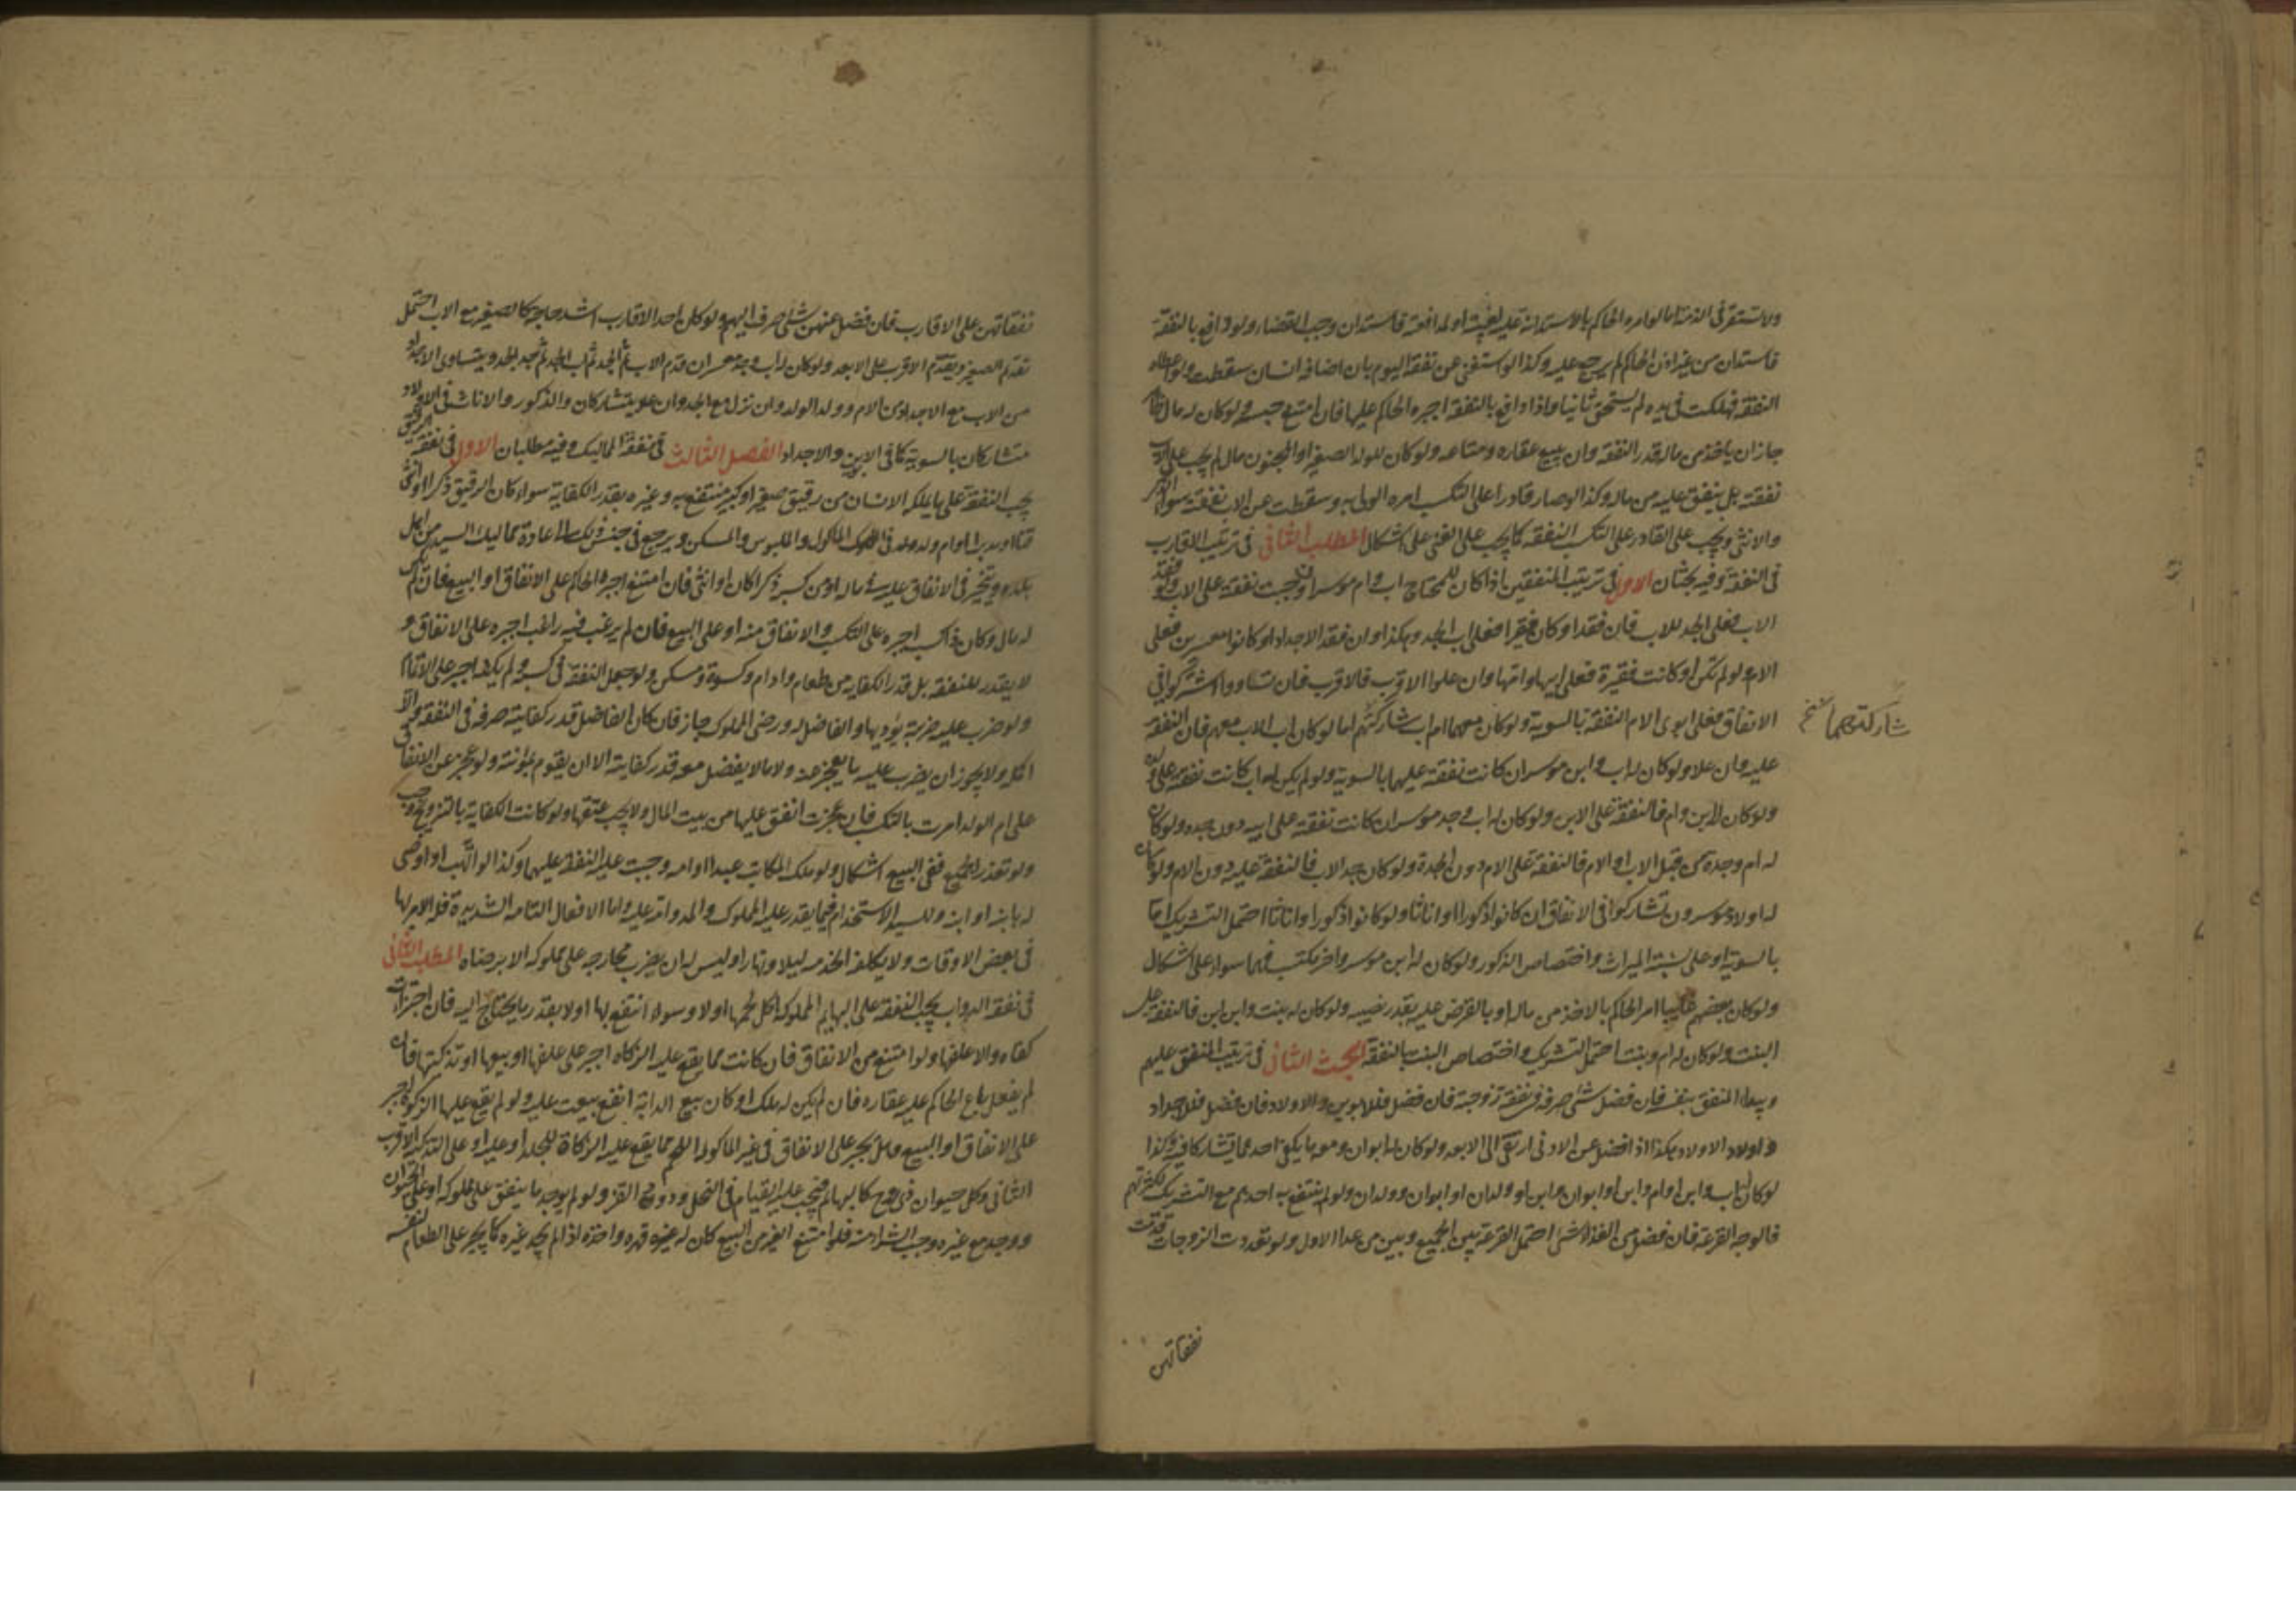 ولا تستقر فى الذمة اما لو امره الحاكم بالاستدانة عليه لغيبة او لمدافعة فاستدان وجب القضاء ولو دافع بالنفقة
فاستدان من غير اذن الحاكم لم يرجع عليه وكذا لو استغنى عن نفقة اليوم بان اضافه انسان سقطت ولو اعطاه
النفقة فهلكت فى يده لم يستحق ثانيا واذا دافع بالنفقة اجبره الحاكم عليها فان امتنع حبسه ولو كان له مال ظاهر
جاز ان ياخذ من ماله قدر النفقة وان يبيع عقاره ومتاعه ولو كان للولد الصغير او المجنون مال لم يجب على الاب
نفقته بل ينفق عليه من ماله وكذا لو صار قادرا على التكسب امره الولى به وسقطت عن الاب نفقته سواء الذكر
والانثى ويجب على القادر على التكسب النفقة كما يجب على الغنى على اشكال المطلب الثانى فى ترتيب الاقارب
فى النفقة وفيه بحثان الاول فى ترتيب المنفقين اذا كان للمحتاج اب وام موسران وجبت نفقته على الاب ولو فقد
الاب فعلى الجد للاب فان فقد او كان فقيرا فعلى اب الجد وهكذا وان فقد الاجداد او كانوا معسرين فعلى
الام ولو لم تكن او كانت فقيرة فعلى ابيها وامها وان علوا الاقرب فالاقرب فان تساووا اشتركوا فى
الانفاق فعلى ابوى الام النفقة بالسوية ولو كان معهما ام اب شاركتهم اما لو كان اب الاب معهم فان النفقة
شاركتهما نسخ
عليه وان علا ولو كان له اب وابن موسران كانت نفقته عليهما بالسوية ولو لم يكن له اب كانت نفقته على
ولو كان له ابن وام فالنفقة على الابن ولو كان له اب وجد موسران كانت نفقته على ابيه دون جده ولو كان
له ام وجدة من قبل الاب او الام فالنفقة على الام دون الجدة ولو كان جد الاب فالنفقة عليه دون الام ولو كان
له اولاد موسرون تشاركوا فى الانفاق ان كانوا ذكورا او اناثا ولو كانوا ذكورا واناثا احتمل التشريك اما
بالسوية او على نسبة الميراث واختصاص الذكور ولو كان له ابن موسر واخر مكتسب فهما سواء على اشكال
ولو كان بعضهم غايبا امر الحاكم بالاخذ من ماله او بالقرض عليه بقدر نصيبه ولو كان له بنت وابن ابن فالنفقة على
البنت ولو كان له ام وبنت احتمل التشريك واختصاص البنت بالنفقة البحث الثانى فى ترتيب المنفق عليهم
ويبدا المنفق بنفسه فان فضل شئ صرفه فى نفقة زوجته فان فضل فللابوين والاولاد فان فضل فللاجداد
واولاد الاولاد وهكذا اذا فضل عن الادنى ارتقى الى الابعد ولو كان له ابوان ومعه ما يكفى احدهما تشاركا فيه وكذا
لو كان له اب وابن او ام وابن او ابوان وابن او ولدان او ابوان وولدان ولو لم ينتفع به احدهم مع التشريك لكثرتهم
فالوجه القرعة فان فضل من الغذاء شئ احتمل القرعة بين الجميع وبين من عدا الاول ولو تعددت الزوجات قدمت
نفقاتهن
نفقاتهن على الاقارب فان فضل عنهن شئ صرف اليهم ولو كان احد الاقارب اشد حاجة كالصغير مع الاب احتمل
تقديم الصغير ويقدم الاقرب على الابعد ولو كان له اب وجد معسران قدم الاب ثم الجد ثم اب الجد ثم جد الجد ويتساوى الاجداد
من الاب مع الاجداد من الام وولد الولد وان نزل مع الجد وان علا يتشاركان والذكور والاناث فى الاولاد
متشاركان بالسوية كما فى الابوين والاجداد الفصل الثالث فى نفقة المماليك وفيه مطلبان الاول فى نفقة الرقيق
يجب النفقة على ما يملكه الانسان من رقيق صغير او كبير منتفع به وغيره بقدر الكفاية سواء كان الرقيق ذكرا او انثى
قنا او مدبرا او ام ولد من الماكول والملبوس والمسكن ويرجع فى جنس ذلك الى عادة مماليك السيد من اهل
بلده ويتخير فى الانفاق عليه من ماله او من كسبه ذكرا كان او انثى فان امتنع اجبره الحاكم على الانفاق او البيع فان لم يكن
له مال وكان ذا كسب اجبره على التكسب والانفاق منه او على البيع فان لم يرغب فيه راغب اجبره على الانفاق و
لا يقدر للنفقة بل قدر الكفاية من طعام وادام وكسوة ومسكن ولو جعل النفقة فى كسبه ولم يكفه اجبر على الاتمام
ولو ضرب عليه ضريبة يؤديها والفاضل له ورضى المملوك جاز فان كان الفاضل قدر كفايته صرفه فى النفقة والا
اكمل ولا يجوز ان يضرب عليه ما يعجز عنه ولا ما لا يفضل معه قدر كفايته الا ان يقوم بمؤنته ولو عجز عن الانفاق
على ام الولد امرت بالتكسب فان عجزت انفق عليها من بيت المال ولا يجب عتقها ولو كانت الكفاية بالتزويج وجب
ولو تعذر الجميع ففى البيع اشكال ولو ملك المكاتب عبدا او امة وجبت عليه النفقة عليهما وكذا لو اتهب او اوصى
له بابنه او ابنه وللسيد الاستخدام فيما يقدر عليه المملوك والمداومة عليه واما الافعال الشاقة الشديدة فله الامر بها
فى بعض الاوقات ولا يكلف الخدمة ليلا ونهارا وليس له ان يضرب مخارجه على مملوكه الا برضاه المطلب الثانى
فى نفقة الدواب يجب النفقة على البهايم المملوكة اكل لحمها اولا وسواء انتفع بها اولا بقدر ما يحتاج اليه فان اجتزات
كفاه والا علفها ولو امتنع من الانفاق فان كانت مما يقع عليه الزكاة اجبر على علفها او بيعها او تذكيتها فان
لم يفعل باع الحاكم عليه عقاره فان لم يكن له ملك او كان بيع الدابة انفع بيعت عليه ولو لم يقع عليها الزكوة اجبر
على الانفاق او البيع وهل يجبر على الانفاق فى غير الماكول اللحم مما يقع عليه الزكاة للجلد او عليه او على التذكية الاقرب
الثانى وكل حيوان ذى روح كالبهايم فيجب عليه القيام فى النحل ودود القز ولو لم يوجد ما ينفق على مملوكه او على الحيوان
ووجد مع غيره وجب الشراء منه فلو امتنع الغير من البيع كان له غصبه قهره واخذه اذا لم يجد غيره كما يجبر على الطعام لنفسه